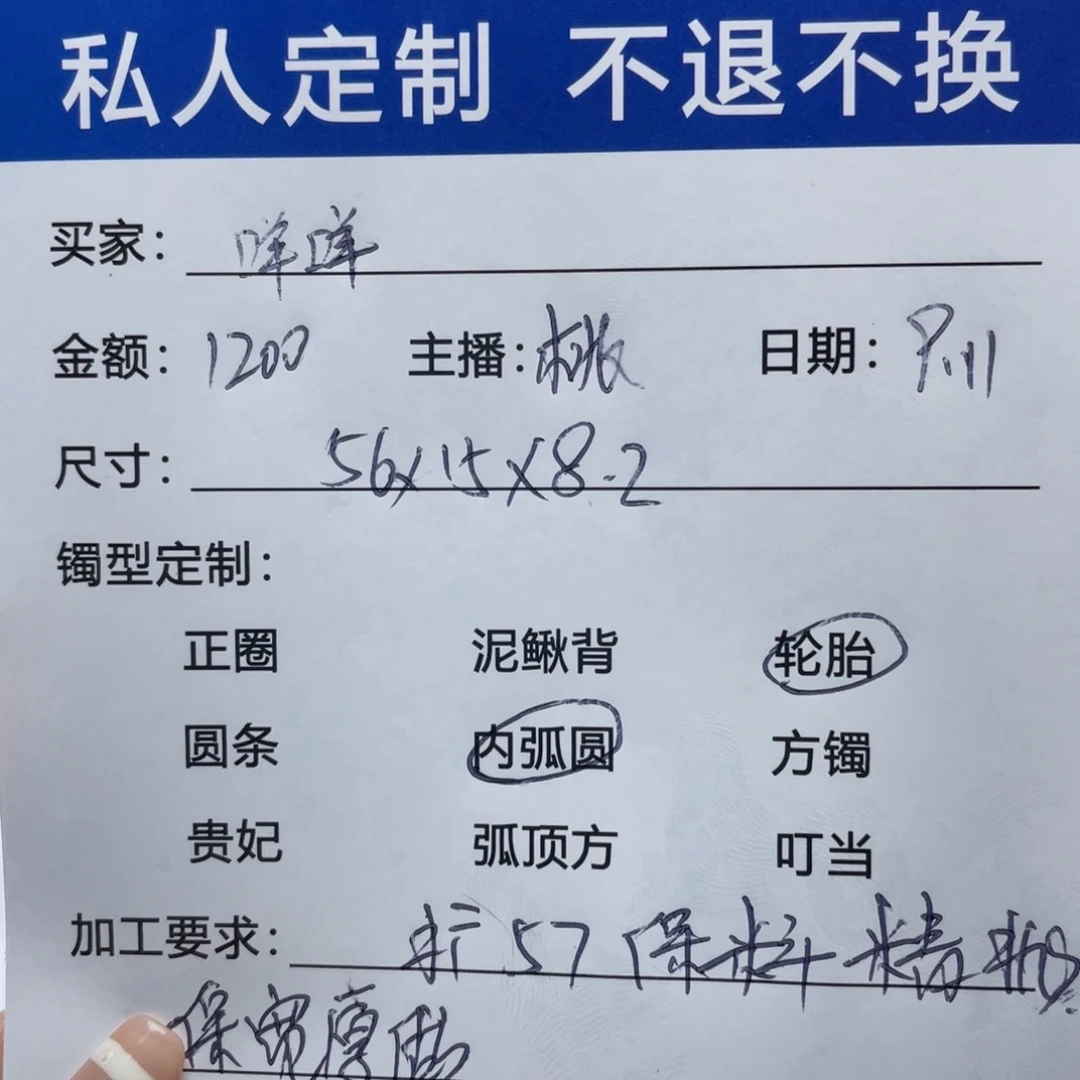 私人定制 不退不换
买家: 咩咩
金额: 1200 主播: 桃 日期: 8.11
尺寸: 56×15×8.2
镯型定制:
正圈 泥鳅背 轮胎
圆条 内弧圆 方镯
贵妃 弧顶方 叮当
加工要求: 扩57 保料 精抛
保宽厚